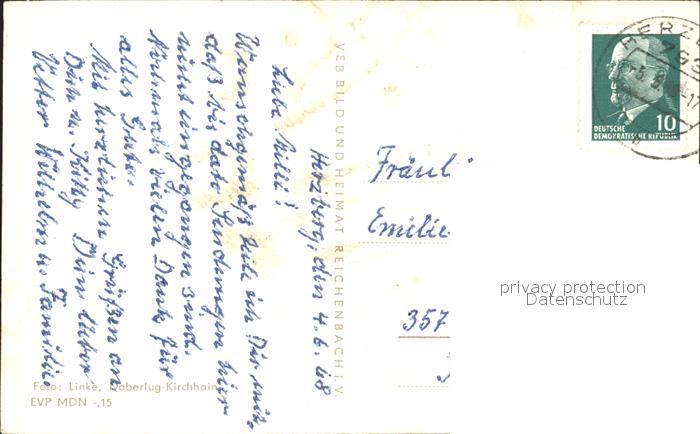 Herzberg, den 4.6.68
Liebe Milli!
Wunschgemäß teile ich Dir mit,
daß bis dato Sendungen hier
nicht eingegangen sind.
Nochmals vielen Dank für
alles Gute.
Mit herzlichen Grüßen an
Dich u. Käthy Dein Vetter
Vetter Wilhelm u. Familie
VEB BILD UND HEIMAT REICHENBACH i. V.
Fräul
Emilie
357
HERZB
DEUTSCHE
DEMOKRATISCHE REPUBLIK
10
privacy protection
Datenschutz
Foto: Linke, Doberlug-Kirchhain
EVP MDN -,15